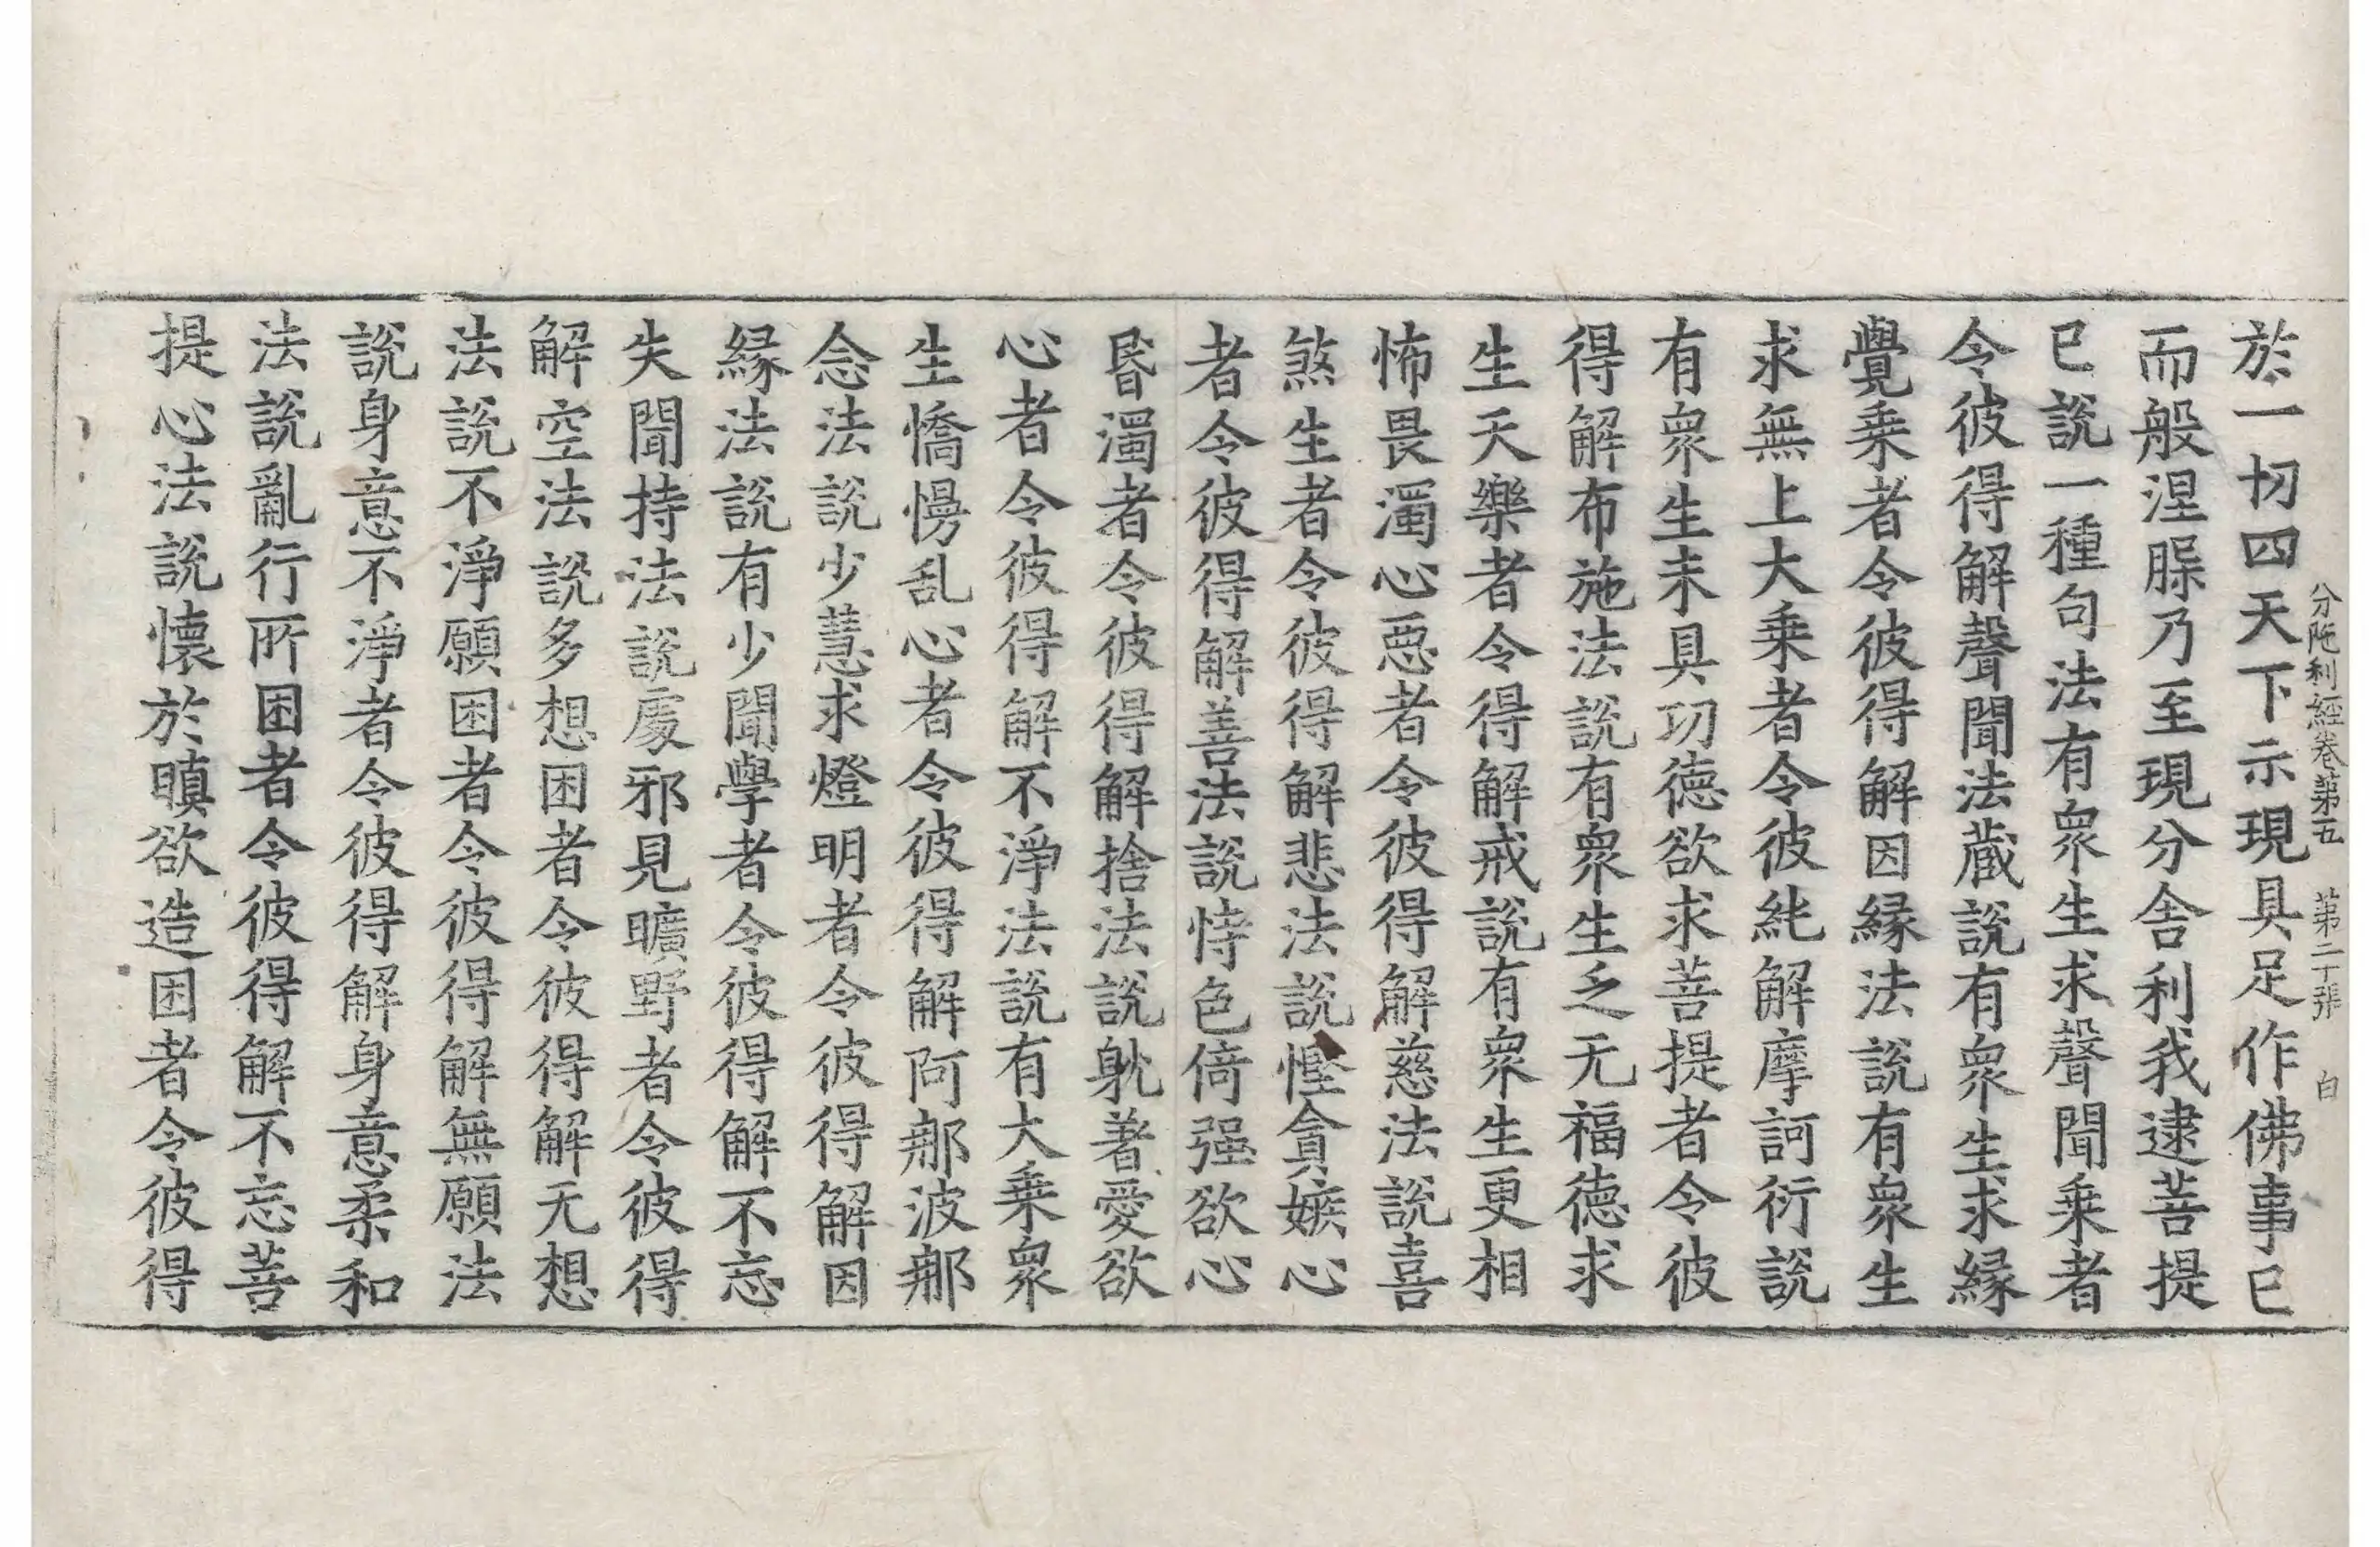 分陁利經卷第五　第二十張　白
於一切四天下示現具足作佛事已
而般涅槃乃至現分舍利我逮菩提
已說一種句法有眾生求聲聞乘者
令彼得解聲聞法藏說有眾生求緣
覺乘者令彼得解因緣法說有眾生
求無上大乘者令彼純解摩訶衍說
有眾生未具功德欲求菩提者令彼
得解布施法說有眾生乏无福德求
生天樂者令得解戒說有眾生更相
怖畏濁心惡者令彼得解慈法說喜
煞生者令彼得解悲法說慳貪嫉心
者令彼得解善法說恃色倚强欲心
昏濁者令彼得解捨法說躭著愛欲
心者令彼得解不淨法說有大乘眾
生憍慢乱心者令彼得解阿那波那
念法說少慧求燈明者令彼得解因
緣法說有少聞學者令彼得解不忘
失聞持法說處邪見曠野者令彼得
解空法說多想困者令彼得解无想
法說不淨願困者令彼得解無願法
說身意不淨者令彼得解身意柔和
法說亂行所困者令彼得解不忘菩
提心法說懷於瞋欲造困者令彼得